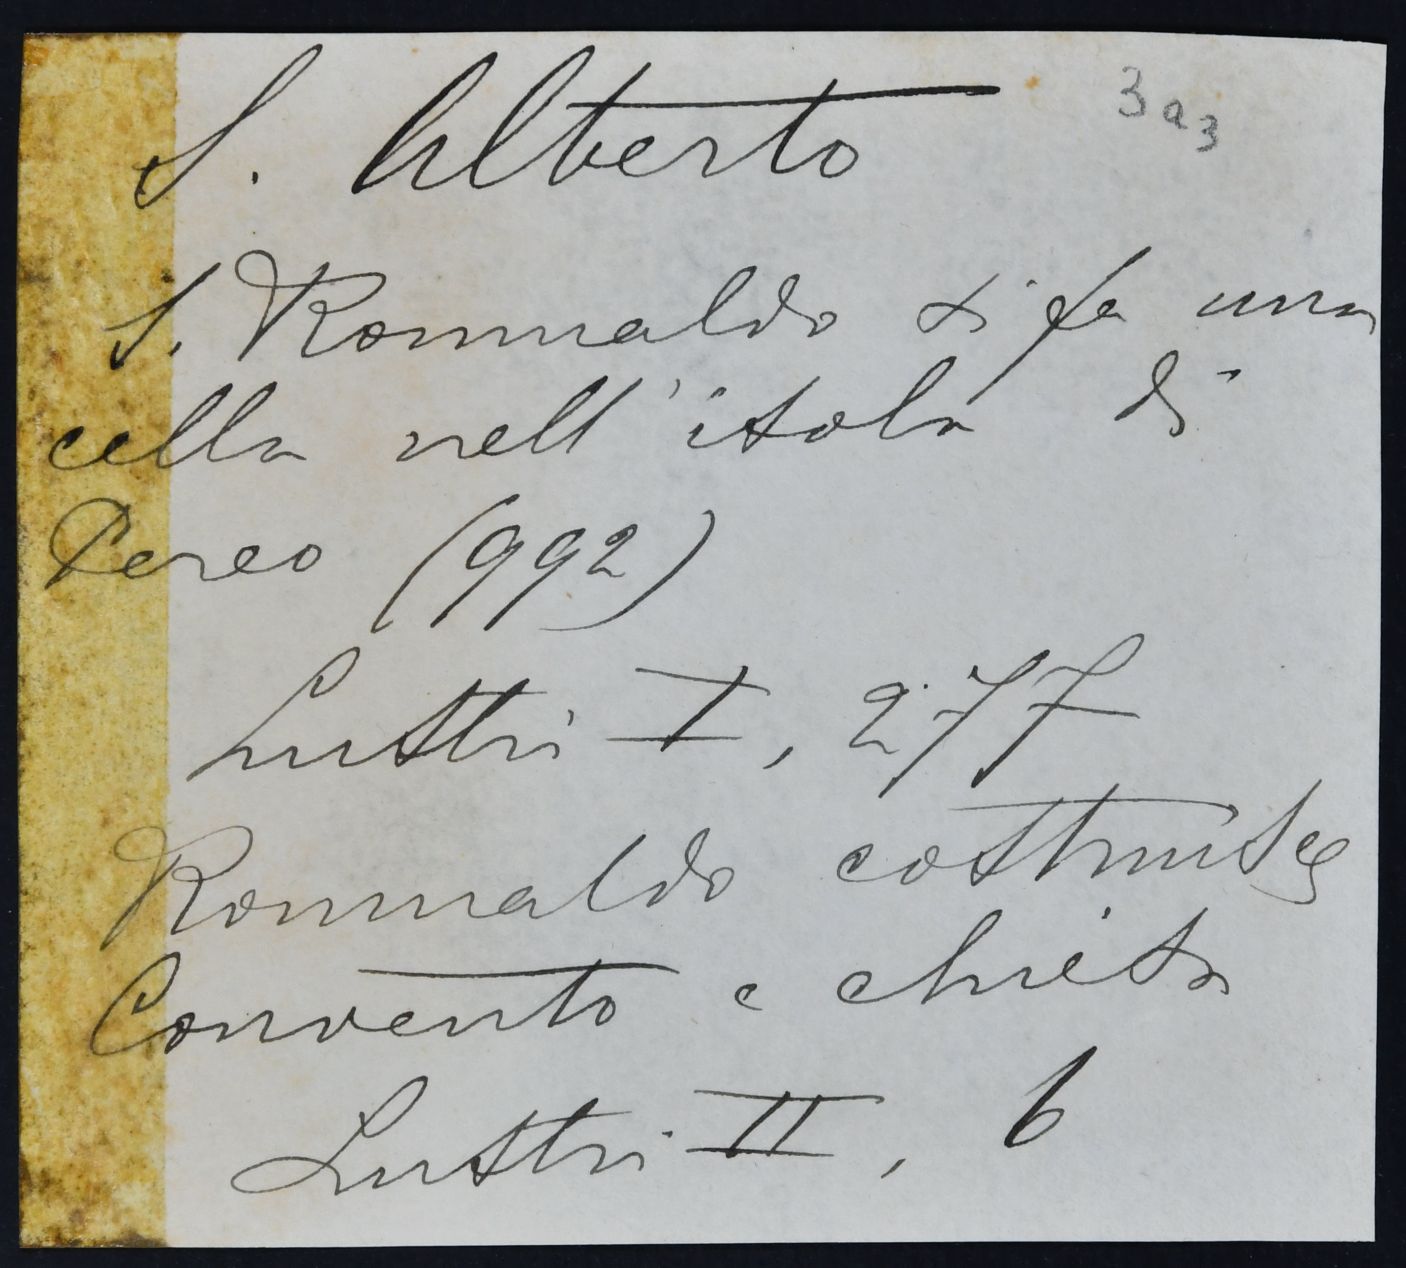 S. Alberto
3a3
S. Romualdo si fa una
cella nell'isola di
Pereo (992)
Lustri I, 277
Romualdo costruisce
Convento e chiesa
Lustri II, 6